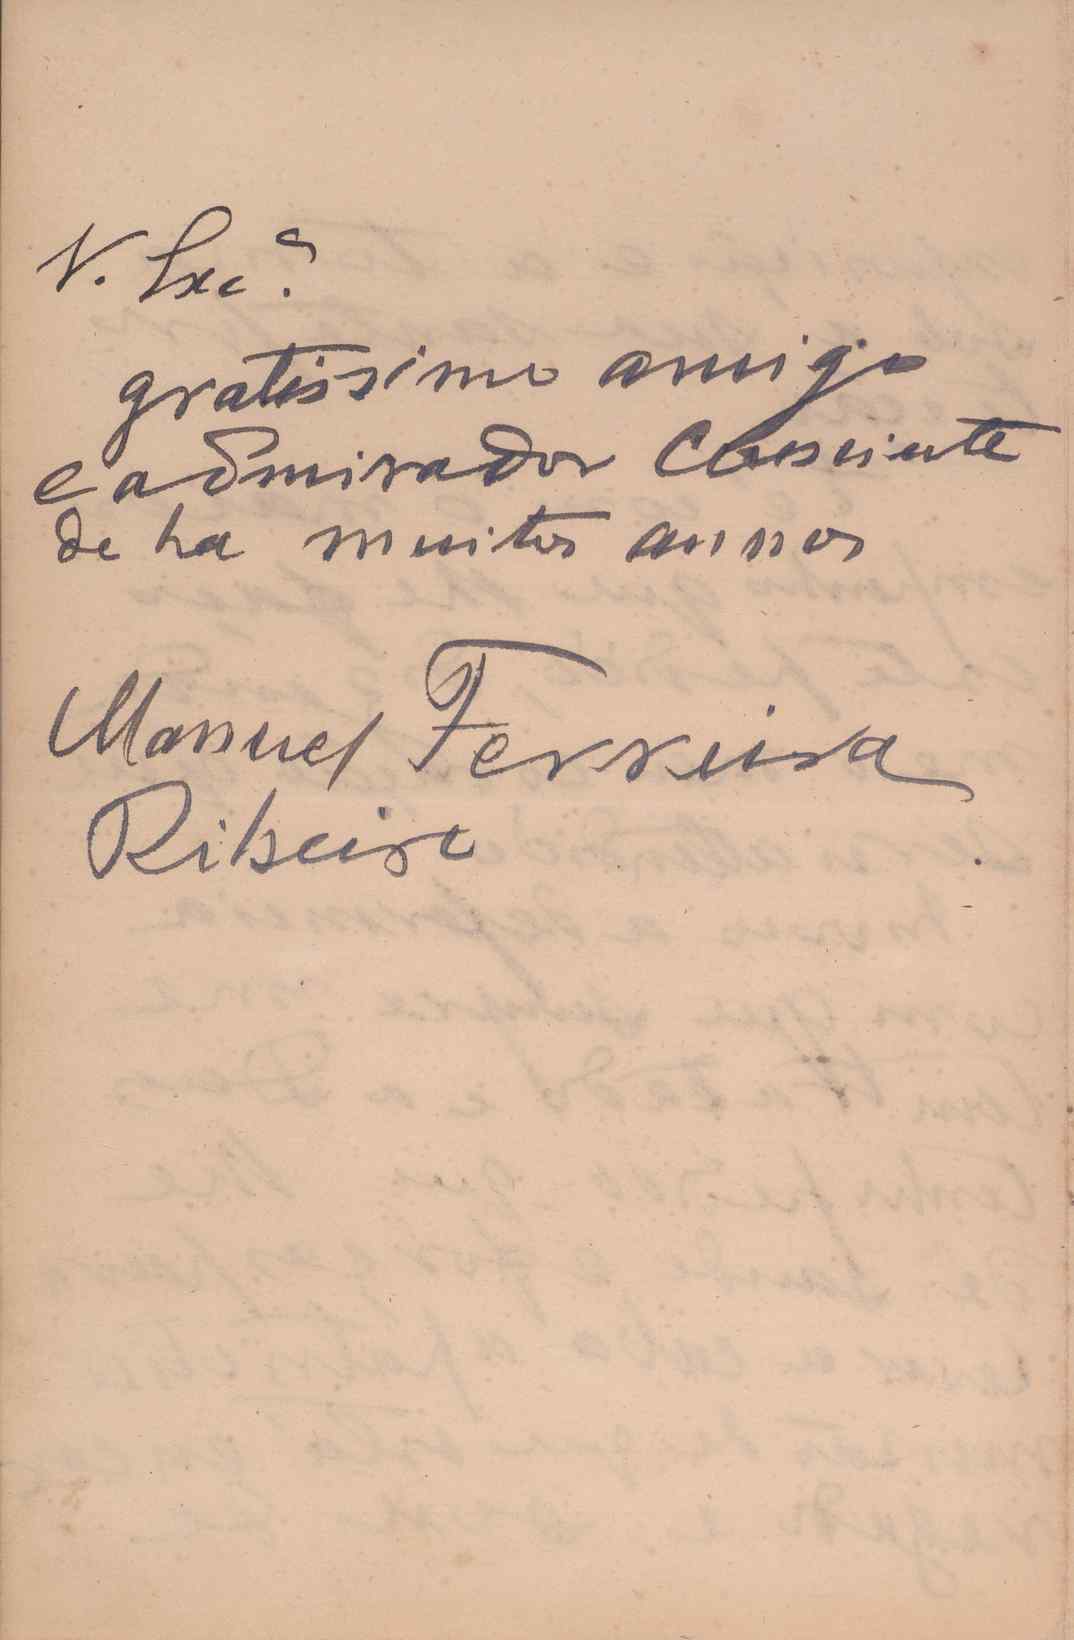 V. Exc.ª
gratissimo amigo
e admirador consciente
de ha muitos annos
Manuel Ferreira
Ribeiro